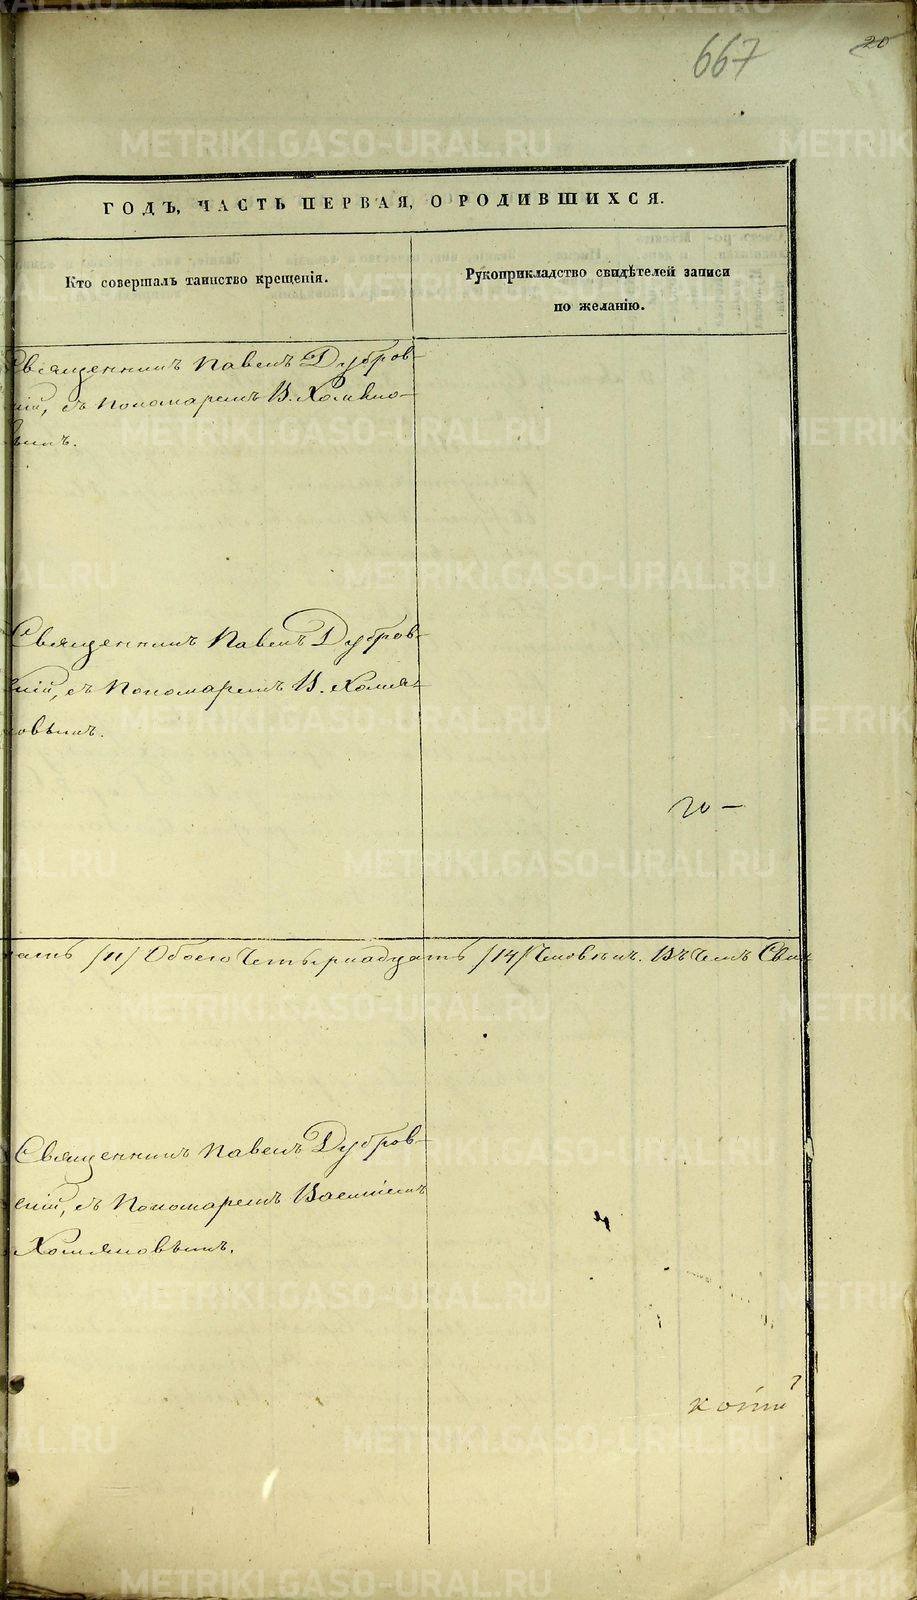 667
20
ГОДЪ, ЧАСТЬ ПЕРВАЯ, О РОДИВШИХСЯ.
Кто совершалъ таинство крещенія.
Рукоприкладство свидѣтелей записи
по желанію.
Священникъ Павелъ Дубров-
скій, съ пономаремъ В. Хомяко-
вымъ.
Священникъ Павелъ Дубров-
скій, съ Пономаремъ В. Хомя-
ковымъ.
/11/ Обоего Четырнадцать /14/ Человѣкъ. Въ чемъ Сви
Священникъ Павелъ Дубров-
скій, съ Пономаремъ Василіемъ
Хомяковымъ.
METRIKI.GASO-URAL.RU